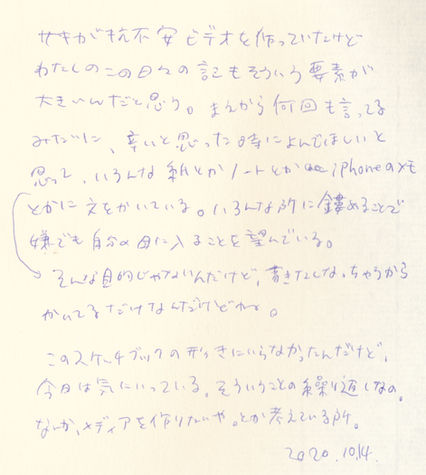 サキが抗不安ビデオを作っていたけど
わたしのこの日々の記もそういう要素が
大きいんだと思う。まえから何回も言ってる
みたいに、辛いと思った時によんでほしいと
思って、いろんな紙とかノートとか iPhoneのメモ
とかに文をかいている。いろんな所に鏤めることで
嫌でも自分の目に入ることを望んでいる。
そんな目的じゃないんだけど、書きたくなっちゃうから
かいてるだけなんだけどね。
このスケッチブックの形きにいらなかったんだけど、
今日は気にいっている。そういうことの繰り返しなの。
なんか、メディアを作りたいや。とか考えている所。
2020.10.4.